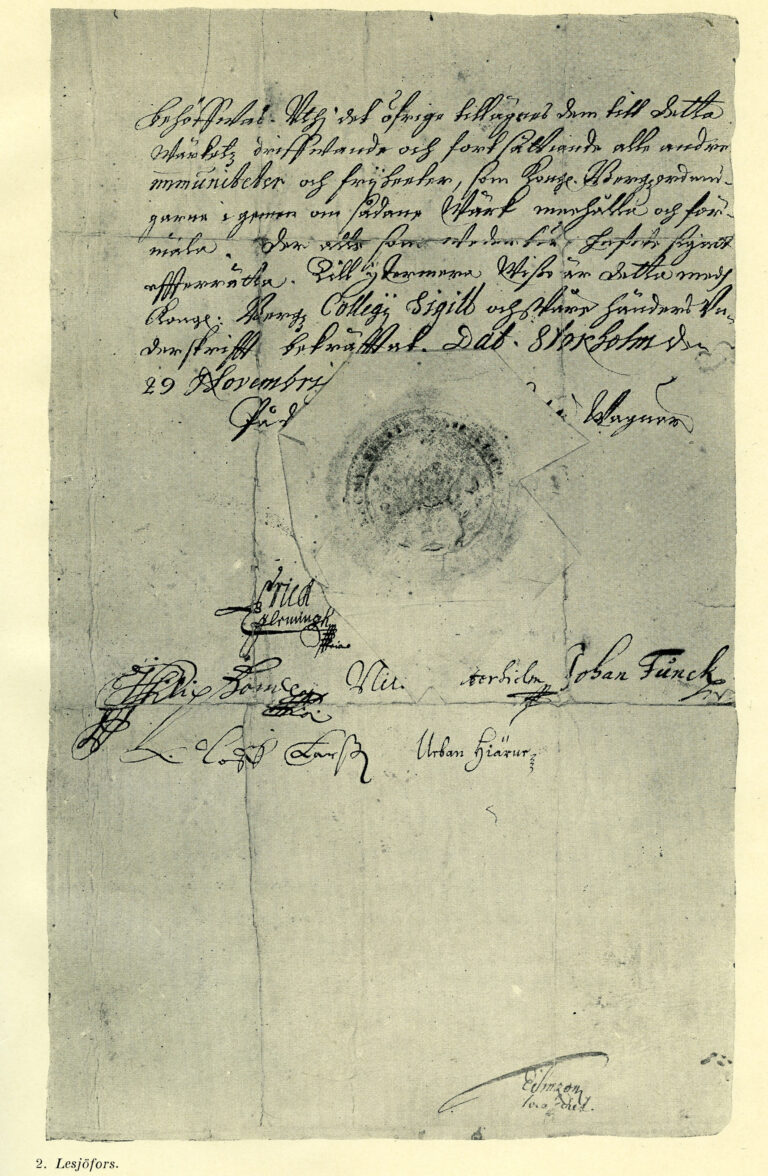 behöffwas. Uthj det öfrige tillägnes dem till detta
Wärketz driffwande och fortsättiande alle andre
immuniteter och frijheeter, som Kongl. Bergzordnin-
garne i gemen om sådane Wärk innehålla och för-
mäla. Der alle som wederbör,
effterrätta. Till ÿtermera Wiso är detta medh
Kongl. Bergz Collegÿ Sigill och wåre händers Un-
derskrifft bekräfftat. Dat. Stokholm den
29 Novembrj
Wagner
Erick
Flemingh
Philip Bonde Nil. Johan Funck
Larß Urban Hiärne
2. Lesjöfors.